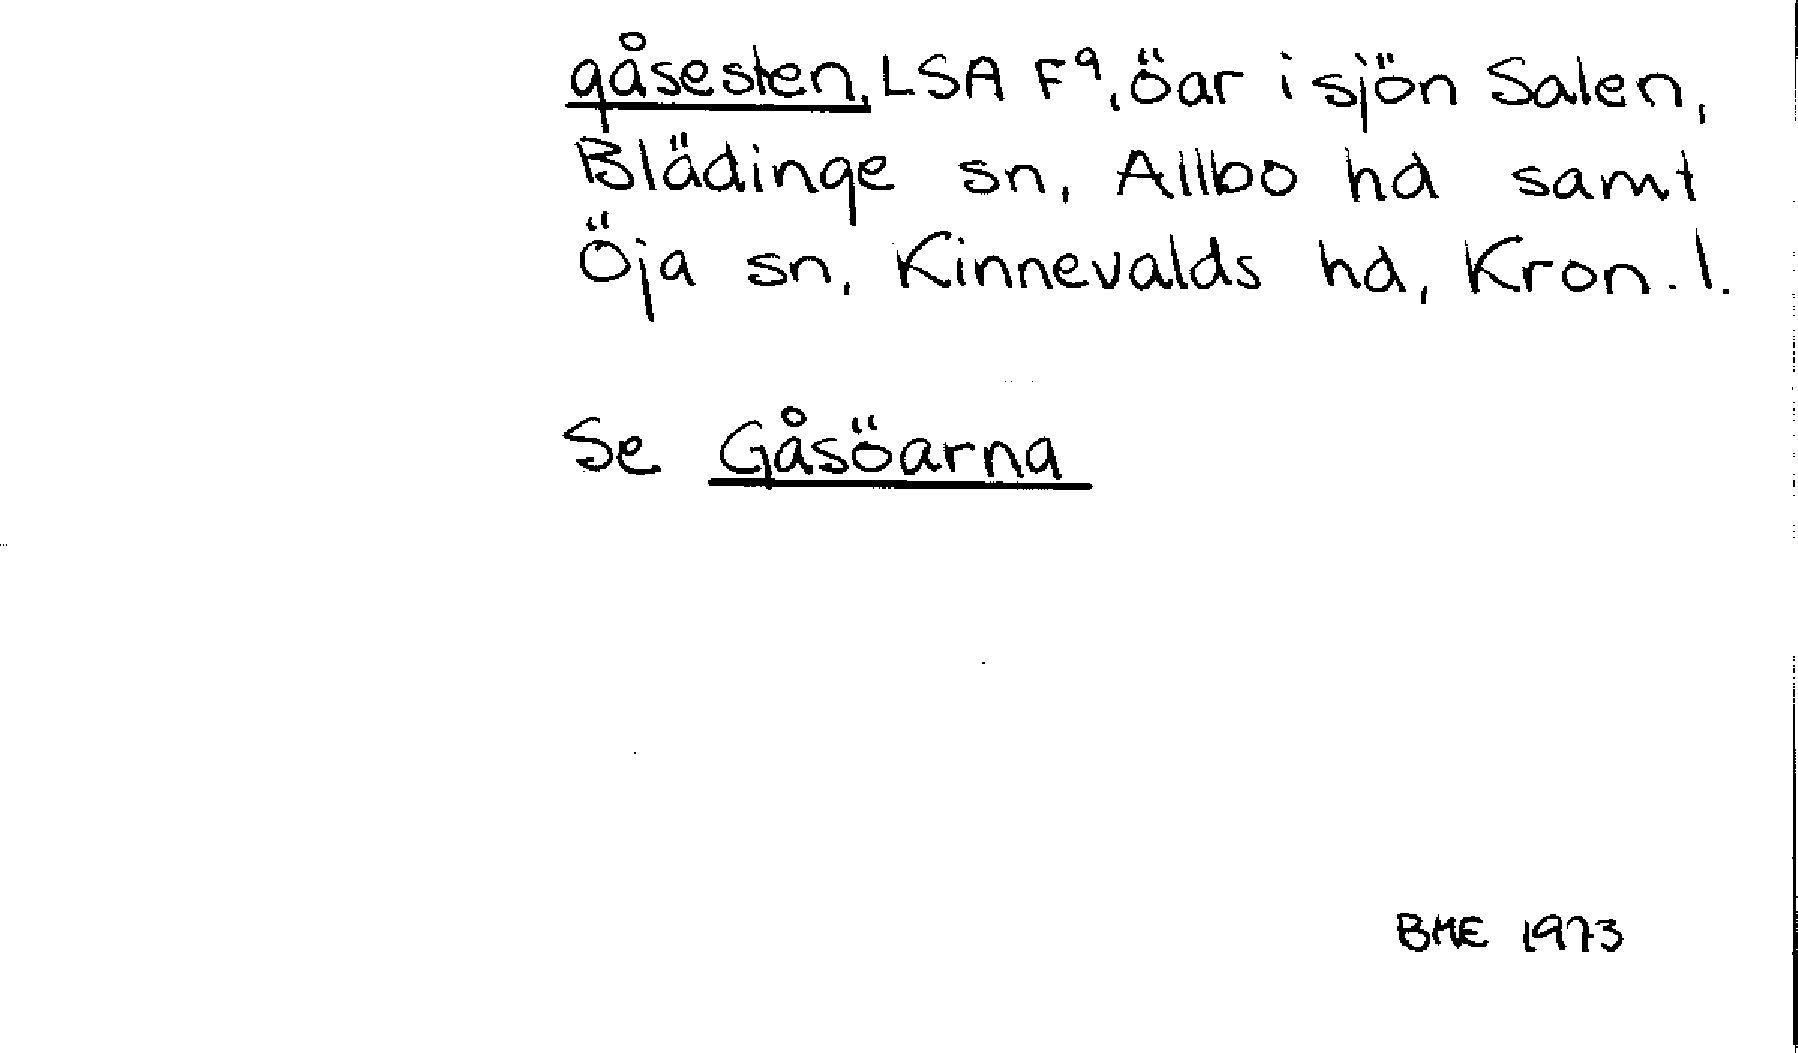 gåsesten, LSA F⁹, öar i sjön Salen,
Blädinge sn, Allbo hd samt
Öja sn, Kinnevalds hd, Kron. l.
Se Gåsöarna
BME 1973